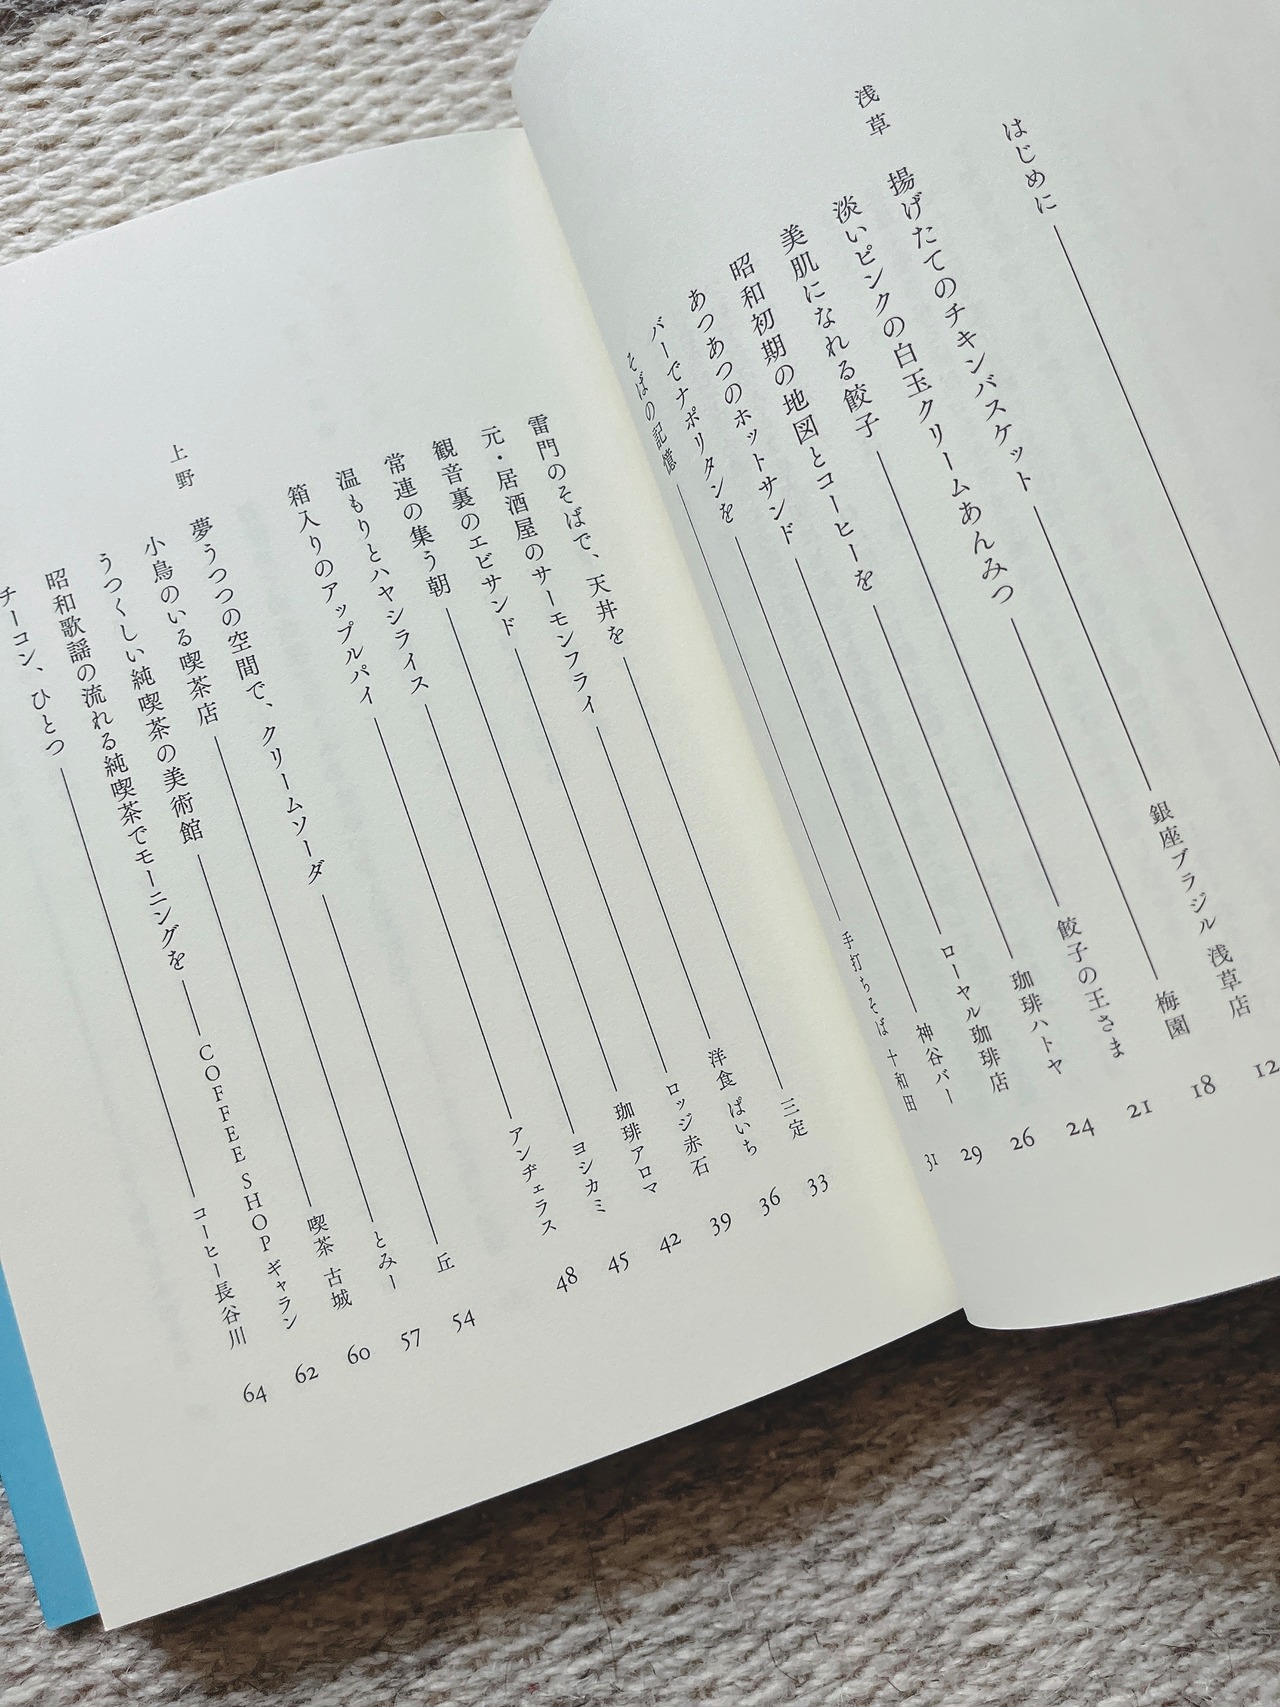 はじめに
浅草 揚げたてのチキンバスケット 銀座ブラジル 浅草店 12
淡いピンクの白玉クリームあんみつ 梅園 18
美肌になれる餃子 餃子の王さま 21
昭和初期の地図とコーヒーを 珈琲ハトヤ 24
あつあつのホットサンド ローヤル珈琲店 26
バーでナポリタンを 神谷バー 29
そばの記憶 手打ちそば 十和田 31
雷門のそばで、天丼を 三定 33
元・居酒屋のサーモンフライ 洋食 ぱいち 36
観音裏のエビサンド ロッジ赤石 39
常連の集う朝 珈琲アロマ 42
温もりとハヤシライス ヨシカミ 45
箱入りのアップルパイ アンヂェラス 48
上野 夢うつつの空間で、クリームソーダ 丘 54
小鳥のいる喫茶店 とみー 57
うつくしい純喫茶の美術館 喫茶 古城 60
昭和歌謡の流れる純喫茶でモーニングを COFFEE SHOP ギャラン 62
チーコン、ひとつ コーヒー長谷川 64